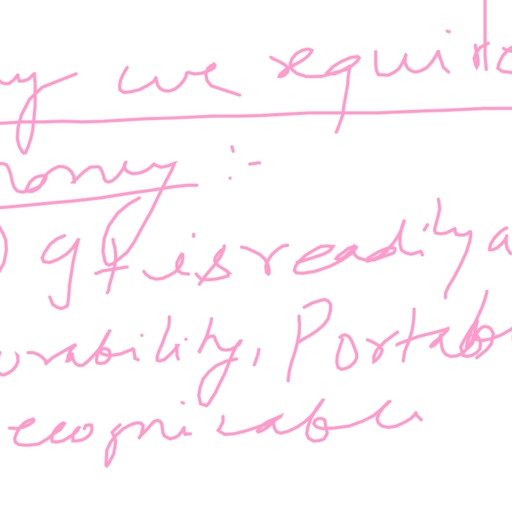 ny we require
money :-
) It is readily a
urability, Portab
ecognizable